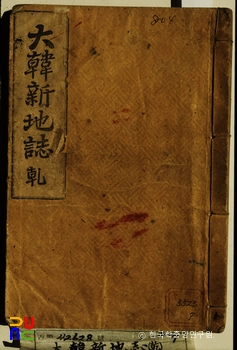 大韓新地誌 乹
804
ⓒ 한국학중앙연구원
大韓新地誌